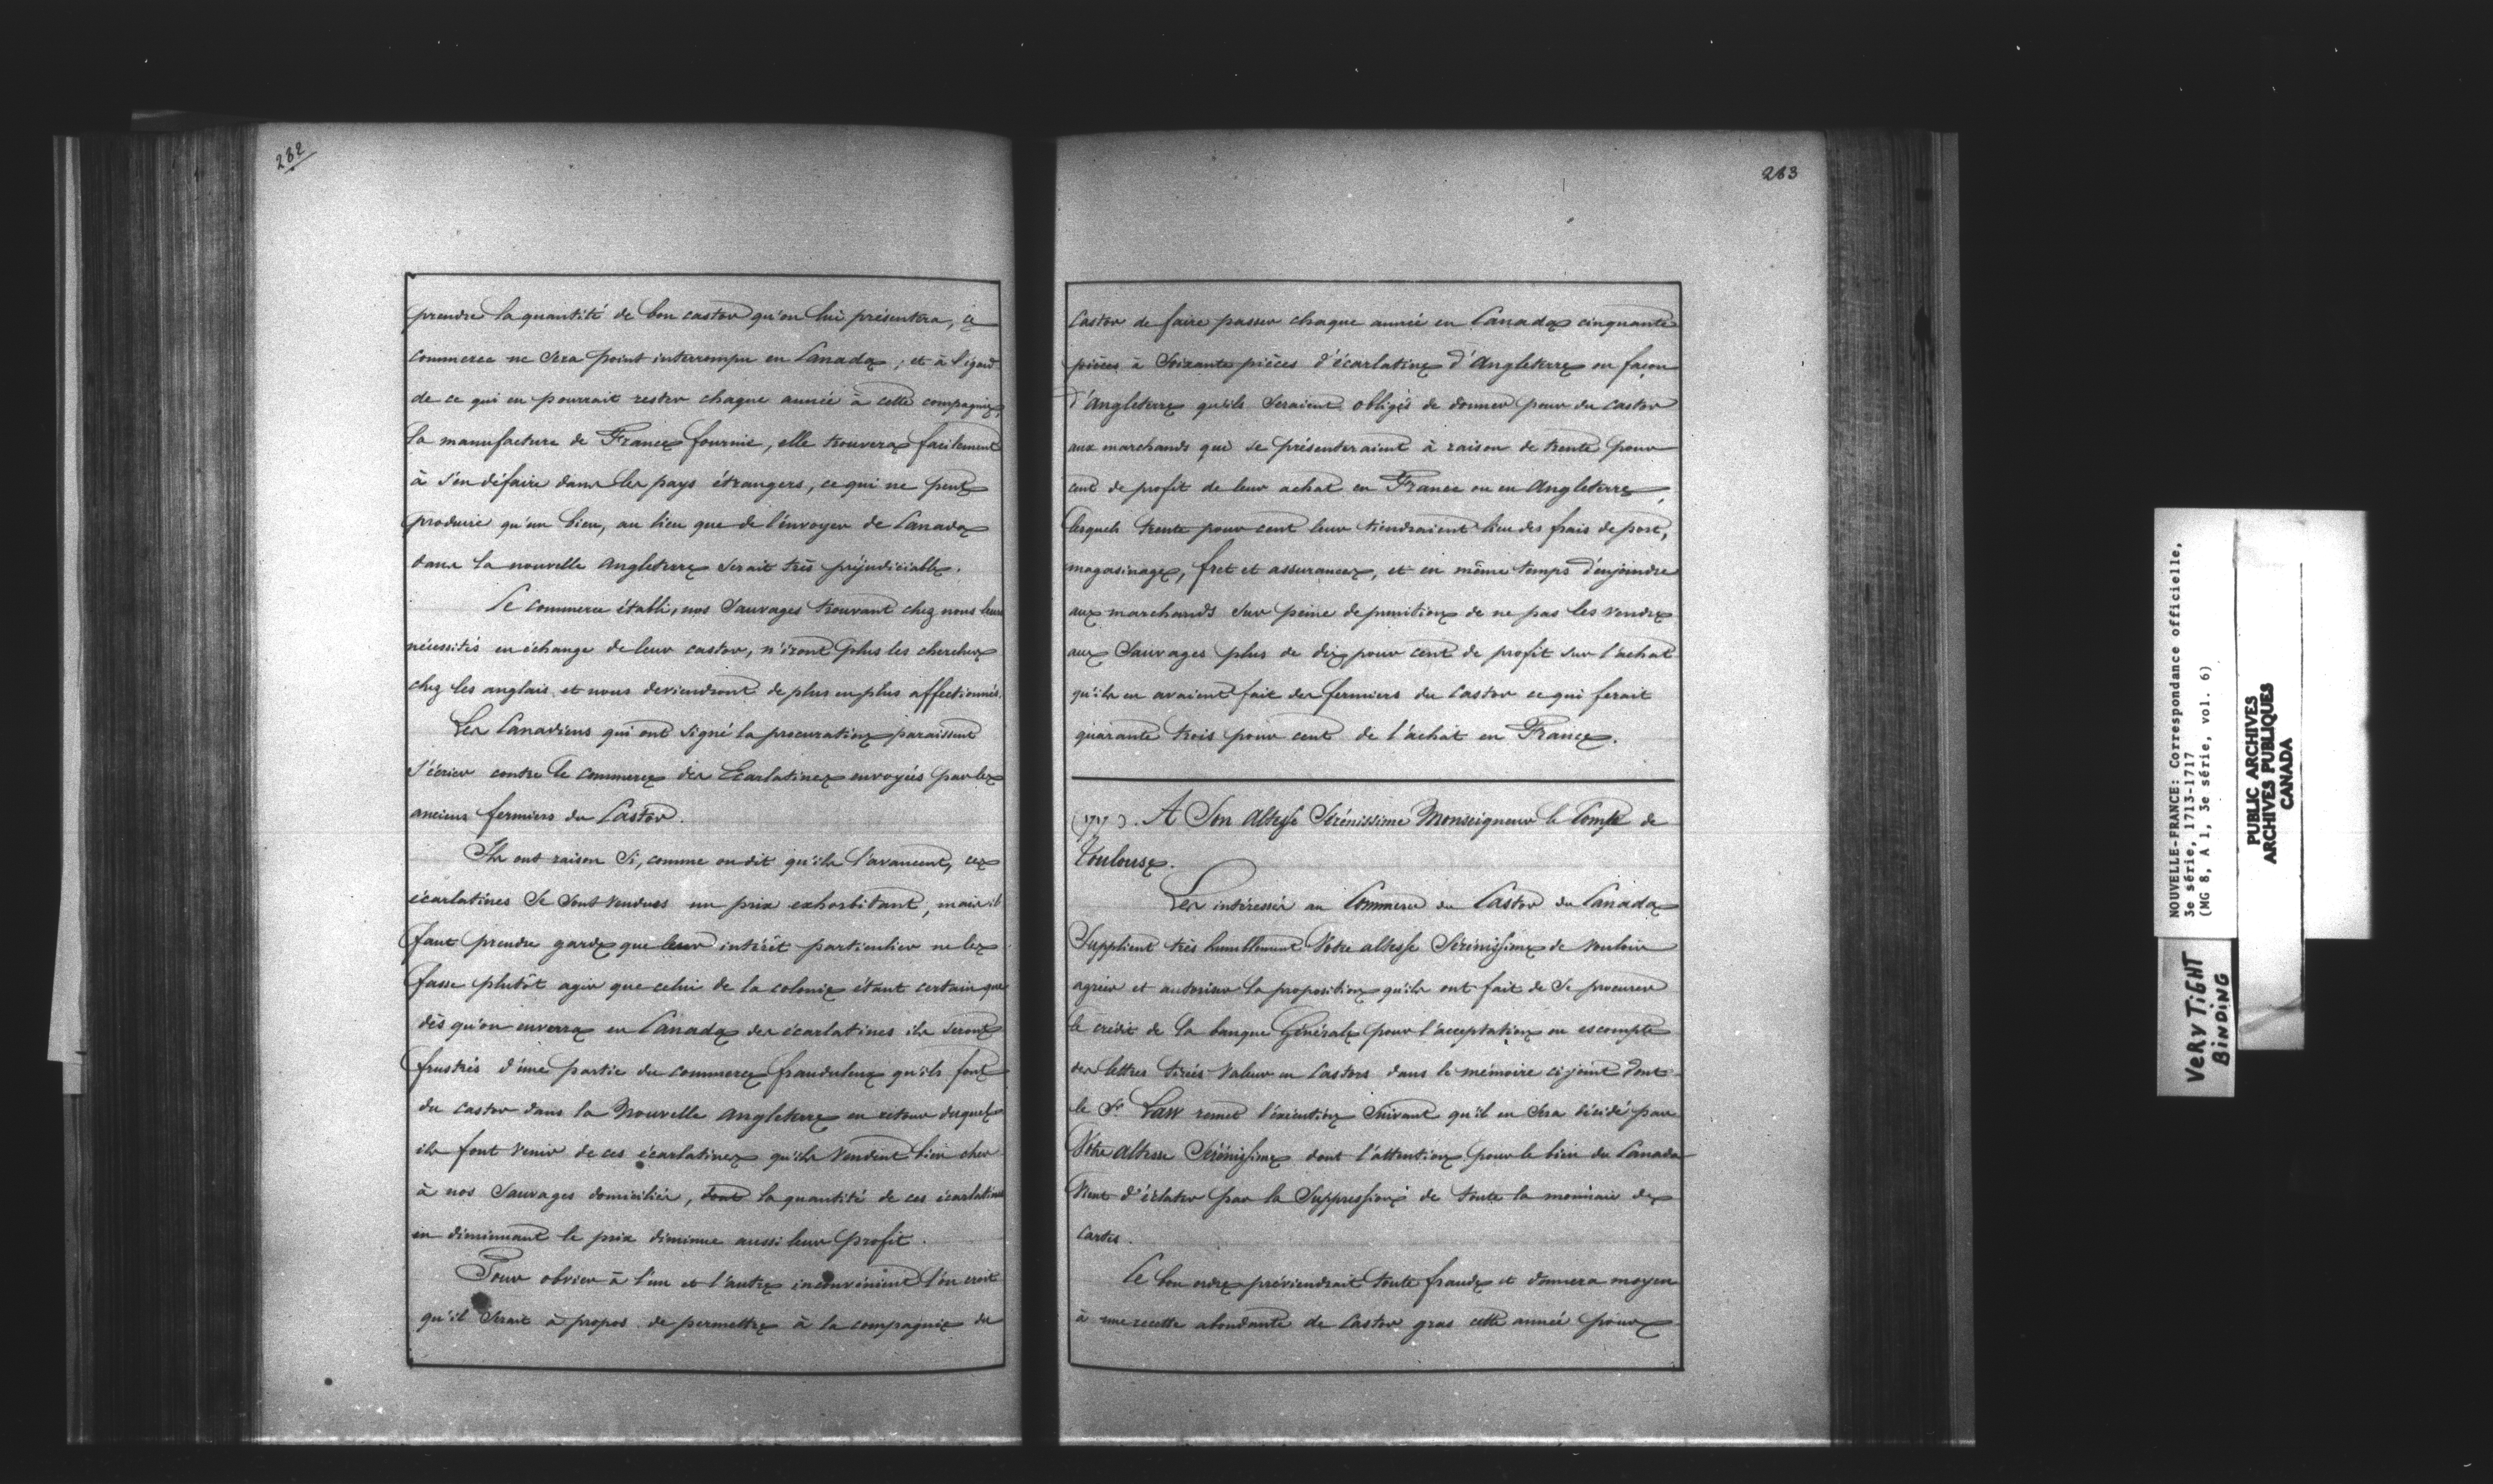 282
prendre la quantité de bon castor qu'on lui présentera, ce
commerce ne sera point interrompu en Canada ; et à l'égard
de ce qui en pourrait rester chaque année à cette compagnie,
la manufacture de France fournie, elle trouvera facilement
à s'en défaire dans les pays étrangers, ce qui ne peut
produire qu'un bien, au lieu que de l'envoyer de Canada
dans la nouvelle angleterre serait très préjudiciable.
Le commerce établi, nos Sauvages trouvant chez nous leurs
nécessités en échange de leur castor, n'iront plus les chercher
chez les anglais et nous deviendront de plus en plus affectionnés.
Les Canadiens qui ont signé la procuration paraissent
s'écrier contre le commerce des Ecarlatines envoyées par les
anciens fermiers du Castor.
Ils ont raison si, comme on dit qu'ils l'avancent, ces
écarlatines se sont vendues un prix exhorbitant, mais il
faut prendre garde que leur intérêt particulier ne les
fasse plutôt agir que celui de la colonie étant certain que
dès qu'on enverra en Canada des écarlatines ils seront
frustrés d'une partie du commerce frauduleux qu'ils font
du castor dans la Nouvelle angleterre en retour duquel
ils font venir de ces écarlatines qu'ils vendent bien cher
à nos Sauvages domiciliés, dont la quantité de ces écarlatines
en diminuant le prix diminue aussi leur profit.
Pour obvier à l'un et l'autre inconvénient l'on croit
qu'il serait à propos de permettre à la compagnie du
283
Castor de faire passer chaque année en Canada cinquante
pièces à Soixante pièces d'écarlatine d'Angleterre ou façon
d'Angleterre qu'ils seraient obligés de donner pour du castor
aux marchands qui se présenteraient à raison de trente pour
cent de profit de leur achat en France ou en Angleterre,
lesquels trente pour cent leur tiendraient lieu des frais de port,
magasinage, fret et assurance, et en même temps d'enjoindre
aux marchands sur peine de punition de ne pas les vendre
aux Sauvages plus de dix pour cent de profit sur l'achat
qu'ils en avaient fait des fermiers du Castor ce qui ferait
quarante trois pour cent de l'achat en France.
(1717). A Son Altesse Sérénissime Monseigneur le Comte de
Toulouse.
Les intéressés au Commerce du Castor du Canada
Supplient très humblement Votre altesse Sérénissime de vouloir
agréer et autoriser la proposition qu'ils ont fait de se procurer
le crédit de la banque Générale pour l'acceptation ou escompte
des lettres tirées valeur en Castors dans le mémoire cijoint dont
le Sr Law remet l'exécution suivant qu'il en sera décidé par
Votre Altesse Sérénissime dont l'attention pour le bien du Canada
vient d'éclater par la Suppression de toute la monnaie de
cartes.
Ce bon ordre préviendrait toute fraude et donnera moyen
à une recette abondante de Castor gras cette année pour
NOUVELLE-FRANCE: Correspondance officielle,
3e série, 1713-1717
(MG 8, A 1, 3e série, vol. 6)
PUBLIC ARCHIVES
ARCHIVES PUBLIQUES
CANADA
VERY TIGHT
BINDING